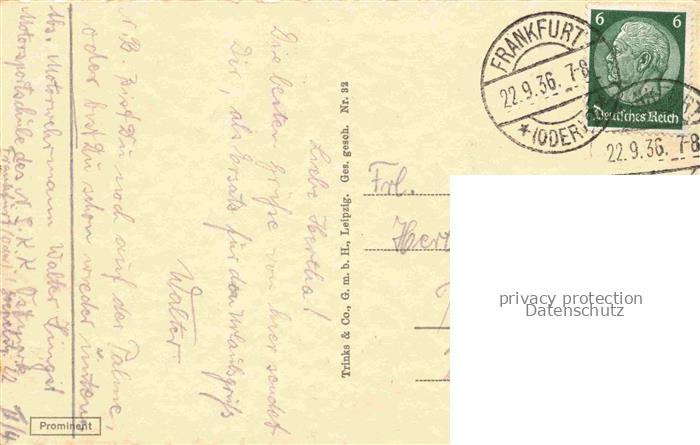 Liebe Hertha!
Die besten Grüße von hier sendet
Dir, als Ersatz für den Urlaubsgruß
Walter
N.B. Bist Du noch auf der Palme,
oder bist Du schon wieder unten
Abs. Motorwehrmann Walter
Motorsportschule des N.S.K.K.
Frankfurt (Oder)
Prominent
Trinks & Co., G. m. b. H., Leipzig. Ges. gesch. Nr. 32
Frl.
Hert
FRANKFURT
22.9.36. 7-8
* (ODER)
6 6
Deutsches Reich
22.9.36. 7-8
privacy protection
Datenschutz